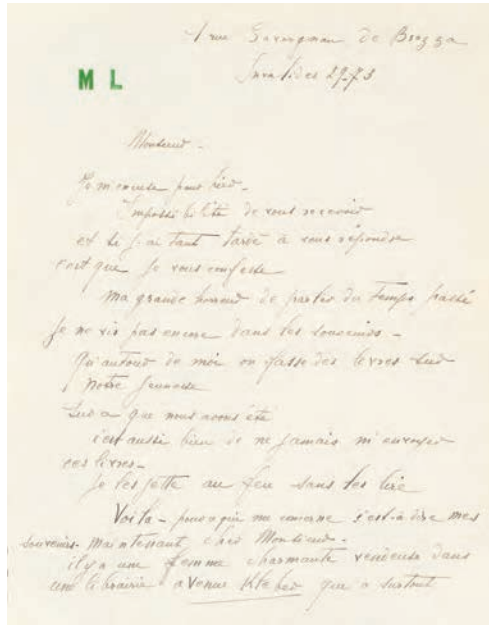 1 rue Savorgnan de Brazza
Invalides 29-73
M L
Monsieur -
Je m'excuse pour
Impossibilité de vous recevoir
et si j'ai tant tardé à vous répondre
c'est que je vous confesse
ma grande horreur de parler du temps passé
Je ne vis pas encore dans les souvenirs -
Qu'autour de moi on fasse des livres sur
notre jeunesse
sur ce que nous avons été
c'est aussi bien de ne jamais m'envoyer
ces livres -
je les jette au feu sans les lire
Voila - pour ce qui me concerne c'est à dire mes
souvenirs. Maintenant cher Monsieur -
il y a une femme charmante vendeuse dans
une librairie avenue Kleber qui a surtout